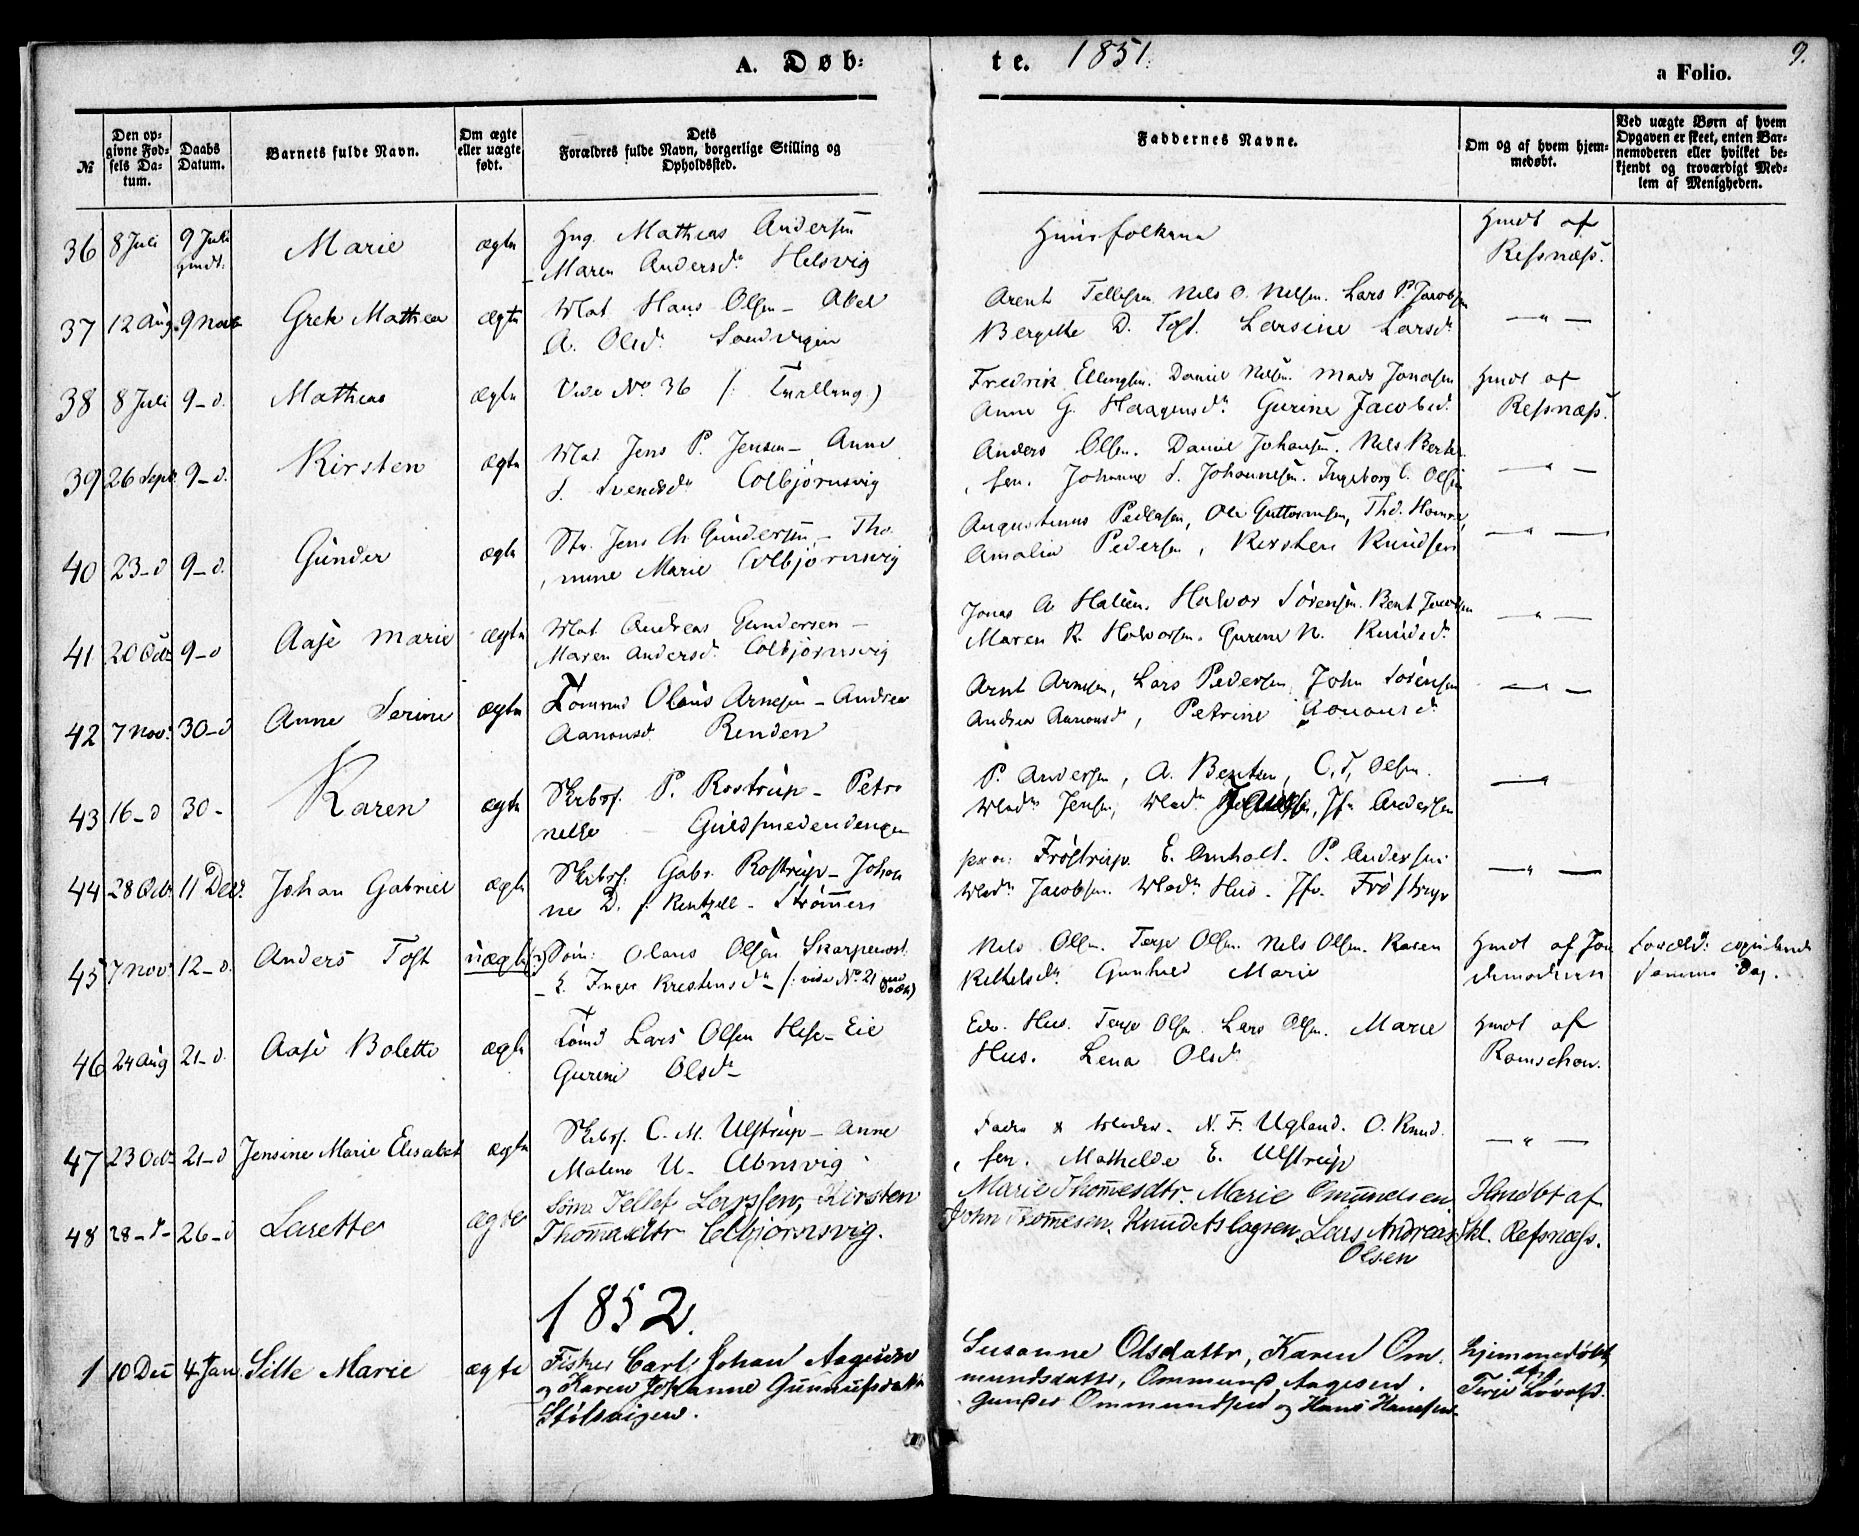 A. Døb: te. 1851. 9.
a Folio.
№ | Den opgivne Fødsels Datum. | Daabs Datum. | Barnets fulde Navn. | Om ægte eller uægte født. | Dets Forældres fulde Navn, borgerlige Stilling og Opholdssted. | Faddernes Navne. | Om og af hvem hjemmedøbt. | Ved uægte Børn af hvem Opgaven er skeet, enten Barnemoderen eller hvilket bekjendt og troværdigt Medlem af Menigheden.
36 | 8 Juli | 9 Juli hmdt. | Marie | ægte | Hug. Mathias Andersen | Huusfolkene | Hmdt af
Maren Andersd. Helsvig | Refsnæss.
37 | 12 Aug. | 9 Novb | Grete Mathea | ægte | Mat. Hans Olsen – Abel | Arent Tellefsen Nils O. Nelsen. Lars P. Jacobsen | — " —
A. Olsd. Sandvigen | Bergitte D. Toft. Larsine Larsd.
38 | 8 Juli | 9 – d. | Mathias | ægte | Vide No 36 (: Tvilling) | Fredrik Ellingsen. Daniel Nilsen. Mads Jonasen | Hmdt af
Anne G. Haagensd. Gurine Jacobsd. | Refsnæss.
39 | 26 Sept. | 9 – d. | Kirsten | ægte | Mat. Jens P. Jensen – Anne | Anders Olsen. Daniel Johansen. Nils Bent | — " —
S. Svendsd. Colbjørnsvig | sen. Johanne S. Johannesen. Ingeborg C. Olsen
40 | 23 – d | 9 – d. | Gunder | ægte | Str. Jens Ch Gundersen – Tho | Augustinus Pedersen, Ole Guttormsen, Thd. | — " —
mine Marie Colbjørnsvig | Amalie Pedersen, Kirsten Knudsen
41 | 20 Octb | 9 – d | Aase Marie | ægte | Mat. Andreas Gundersen – | Jonas A Halsen. Halvor Sørensen. Bent Jacobsen | — " —
Maren Andersd. Colbjørnsvig | Maren K. Halvorsen. Gurine N. Knudsd.
42 | 7 Nov. | 30 – d | Anne Serine | ægte | Tømmd Olaus Arnesen – Andrea | Arnt Arnesen, Lars Pedersen, John Sørensen | — " —
Aanonsd. Renden | Andrea Aanonsd, Petrine Aanonsd.
43 | 16 – d | 30 – | Karen | ægte | Skibsf. P. Rostrup – Petro | P. Andersen, A. Bentzen, C. T. Olsen. | — "
nelle – Guldsmedendengen | Mad. Jensen, Mad. Jfr Andersen
44 | 28 Octb. | 11 Decb. | Johan Gabriel | ægte | Skibsf. Gabr. Rostrup – Johan | Frøstrup. E. Amholt. P. Andersen | — " —
ne D. f. Rentzell – Strømmen | Mad. Jacobsen. Mad. Hus. Jfr. Frøstrup
45 | 7 Nov. | 12 – d. | Anders Toft | uægte | Søm: Olaus Olsen Skarpenost | Nils Olsen. Terje Olsen. Nils Olsen. Karen | Hmdt af Jor | Foræld: copulerede
E. Inger Kristensd. (: vide No 21 | Kittelsd. Gunhild Marie | demoderen | samme Dag.
46 | 24 Aug | 21 – d. | Aase Bolette | ægte | Tømd Lars Olsen Hese-Eie | Edv. Hus. Terje Olsen. Lars Olsen. Marie | Hmdt af
Gurine Olsd. – | Hus. Lena Olsd. | Romschou.
47 | 23 Octb | 21 – d | Jensine Marie Elisabet | ægte | Skibsf. C. M. Ulstrup – Anne | Fader & Moder. N. F. Ugland. O. Knud | — " —
Malene U – | sen. Mathilde E. Ulstrup
48 | 28 – d – | 26 – d | Larette | ægte | Søm. Tellef Larssen, Kirsten | Marie Thommesdtr. Marie Omundsen | Hmdbt af
Thommesdtr Colbjørnsvig. | John Thommesen. Knud Aslagsen. Lars Andreas | kl. Refsnæss.
Olsen
1852.
1 | 10 Dec | 4 Jan. | Sille Marie | ægte | Fisker Carl Johan Aagesen | Susanne Olsdattr, Karen Om | hjemmedøbt
og Karen Johanne Gunnufsdattr | mundsdattr, Ommund Aagesen. | af
Stølsvigen. | Gunder Ommundsen og Hans Hansen | Terje Løvaas.